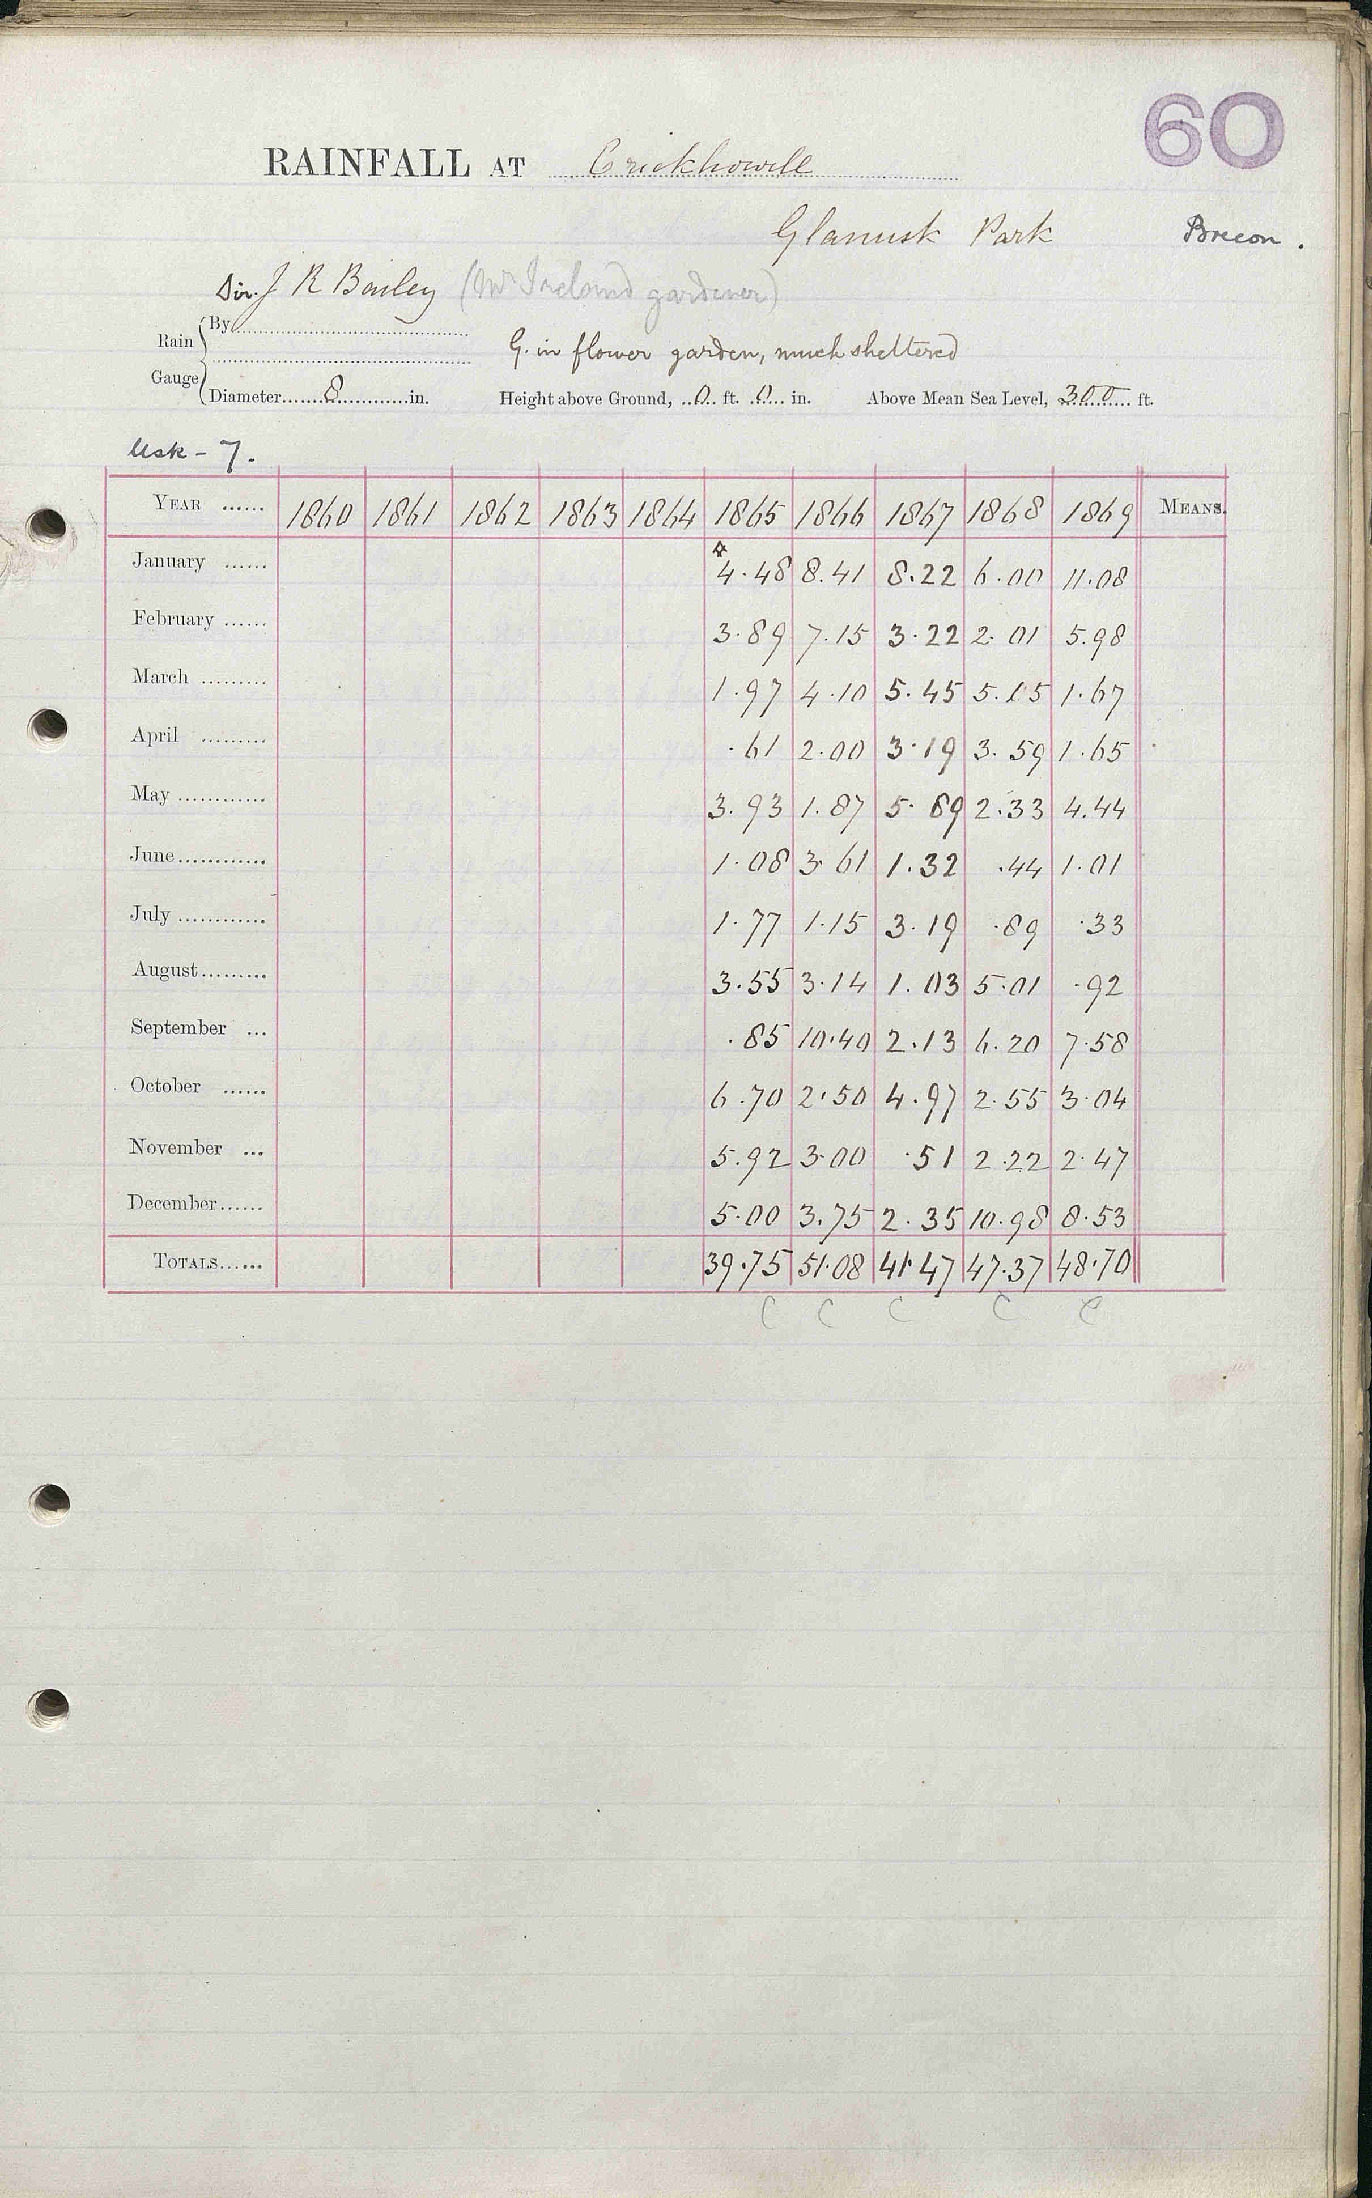 60
RAINFALL AT Crickhowell
Glanusk Park Brecon.
Sir J R Bailey (Mr Ireland gardener)
Rain Gauge By
G. in flower garden, much sheltered
Diameter 8 in. Height above Ground, 0 ft. 0 in. Above Mean Sea Level, 300 ft.
Usk - 7.
YEAR ...... 1860 1861 1862 1863 1864 1865 1866 1867 1868 1869 MEANS.
January ...... * 4.48 8.41 8.22 6.00 11.08
February ...... 3.89 7.15 3.22 2.01 5.98
March ......... 1.97 4.10 5.45 5.15 1.67
April ......... .61 2.00 3.19 3.59 1.65
May ............ 3.93 1.87 5.89 2.33 4.44
June ............ 1.08 3.61 1.32 .44 1.01
July ............ 1.77 1.15 3.19 .89 .33
August ......... 3.55 3.14 1.03 5.01 .92
September ... .85 10.40 2.13 6.20 7.58
October ...... 6.70 2.50 4.97 2.55 3.04
November ... 5.92 3.00 .51 2.22 2.47
December ...... 5.00 3.75 2.35 10.98 8.53
TOTALS ...... 39.75 51.08 41.47 47.37 48.70
C C C C C